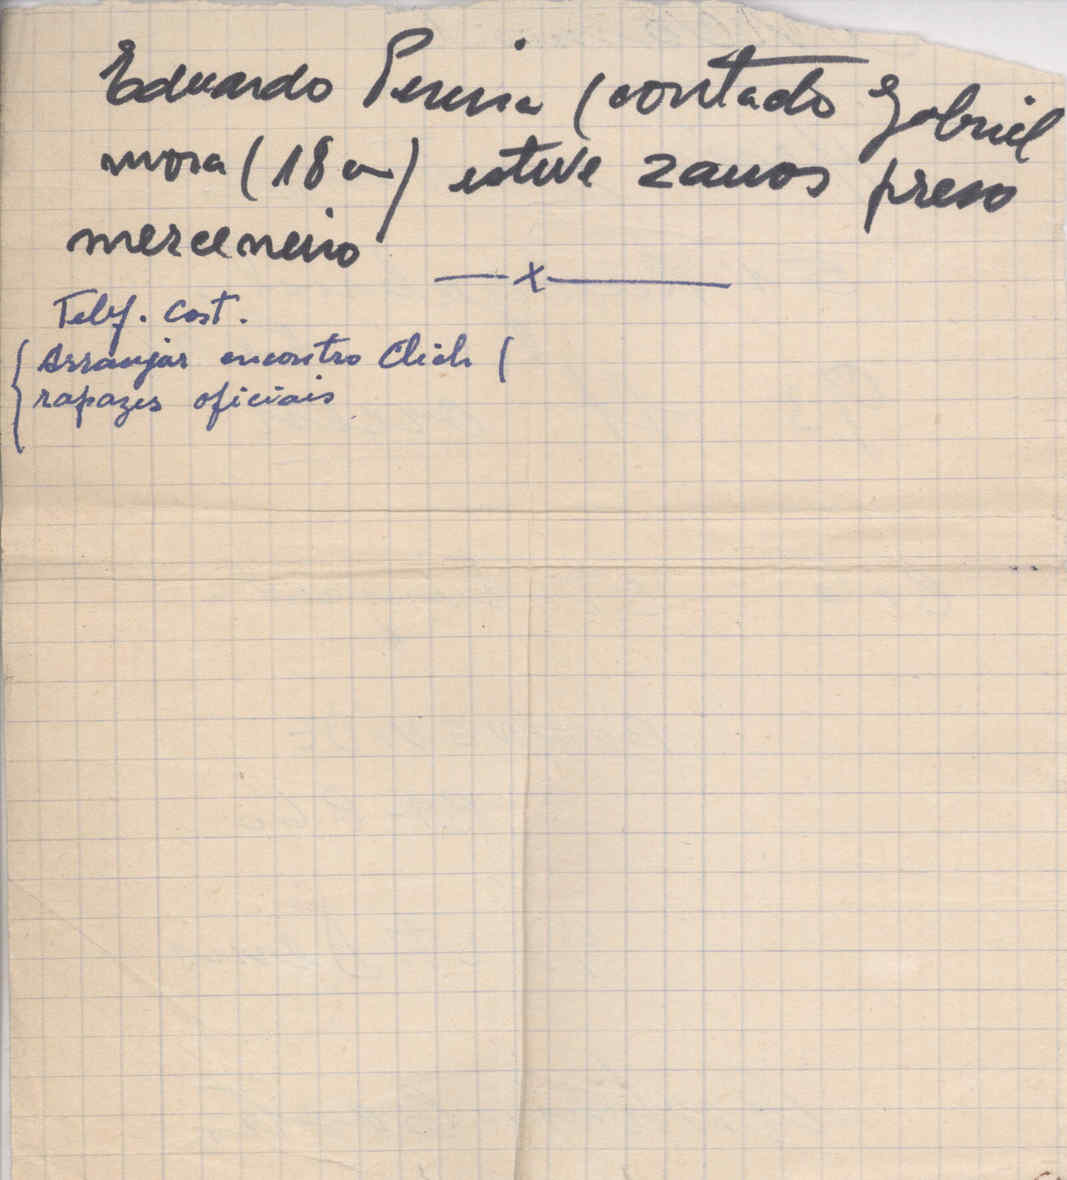 Eduardo Pereira (contado Gabriel
mora (18 a) esteve 2 anos preso
merceneiro
—x—
Telef. Cost.
Arranjar encontro Click (
rapazes oficiais